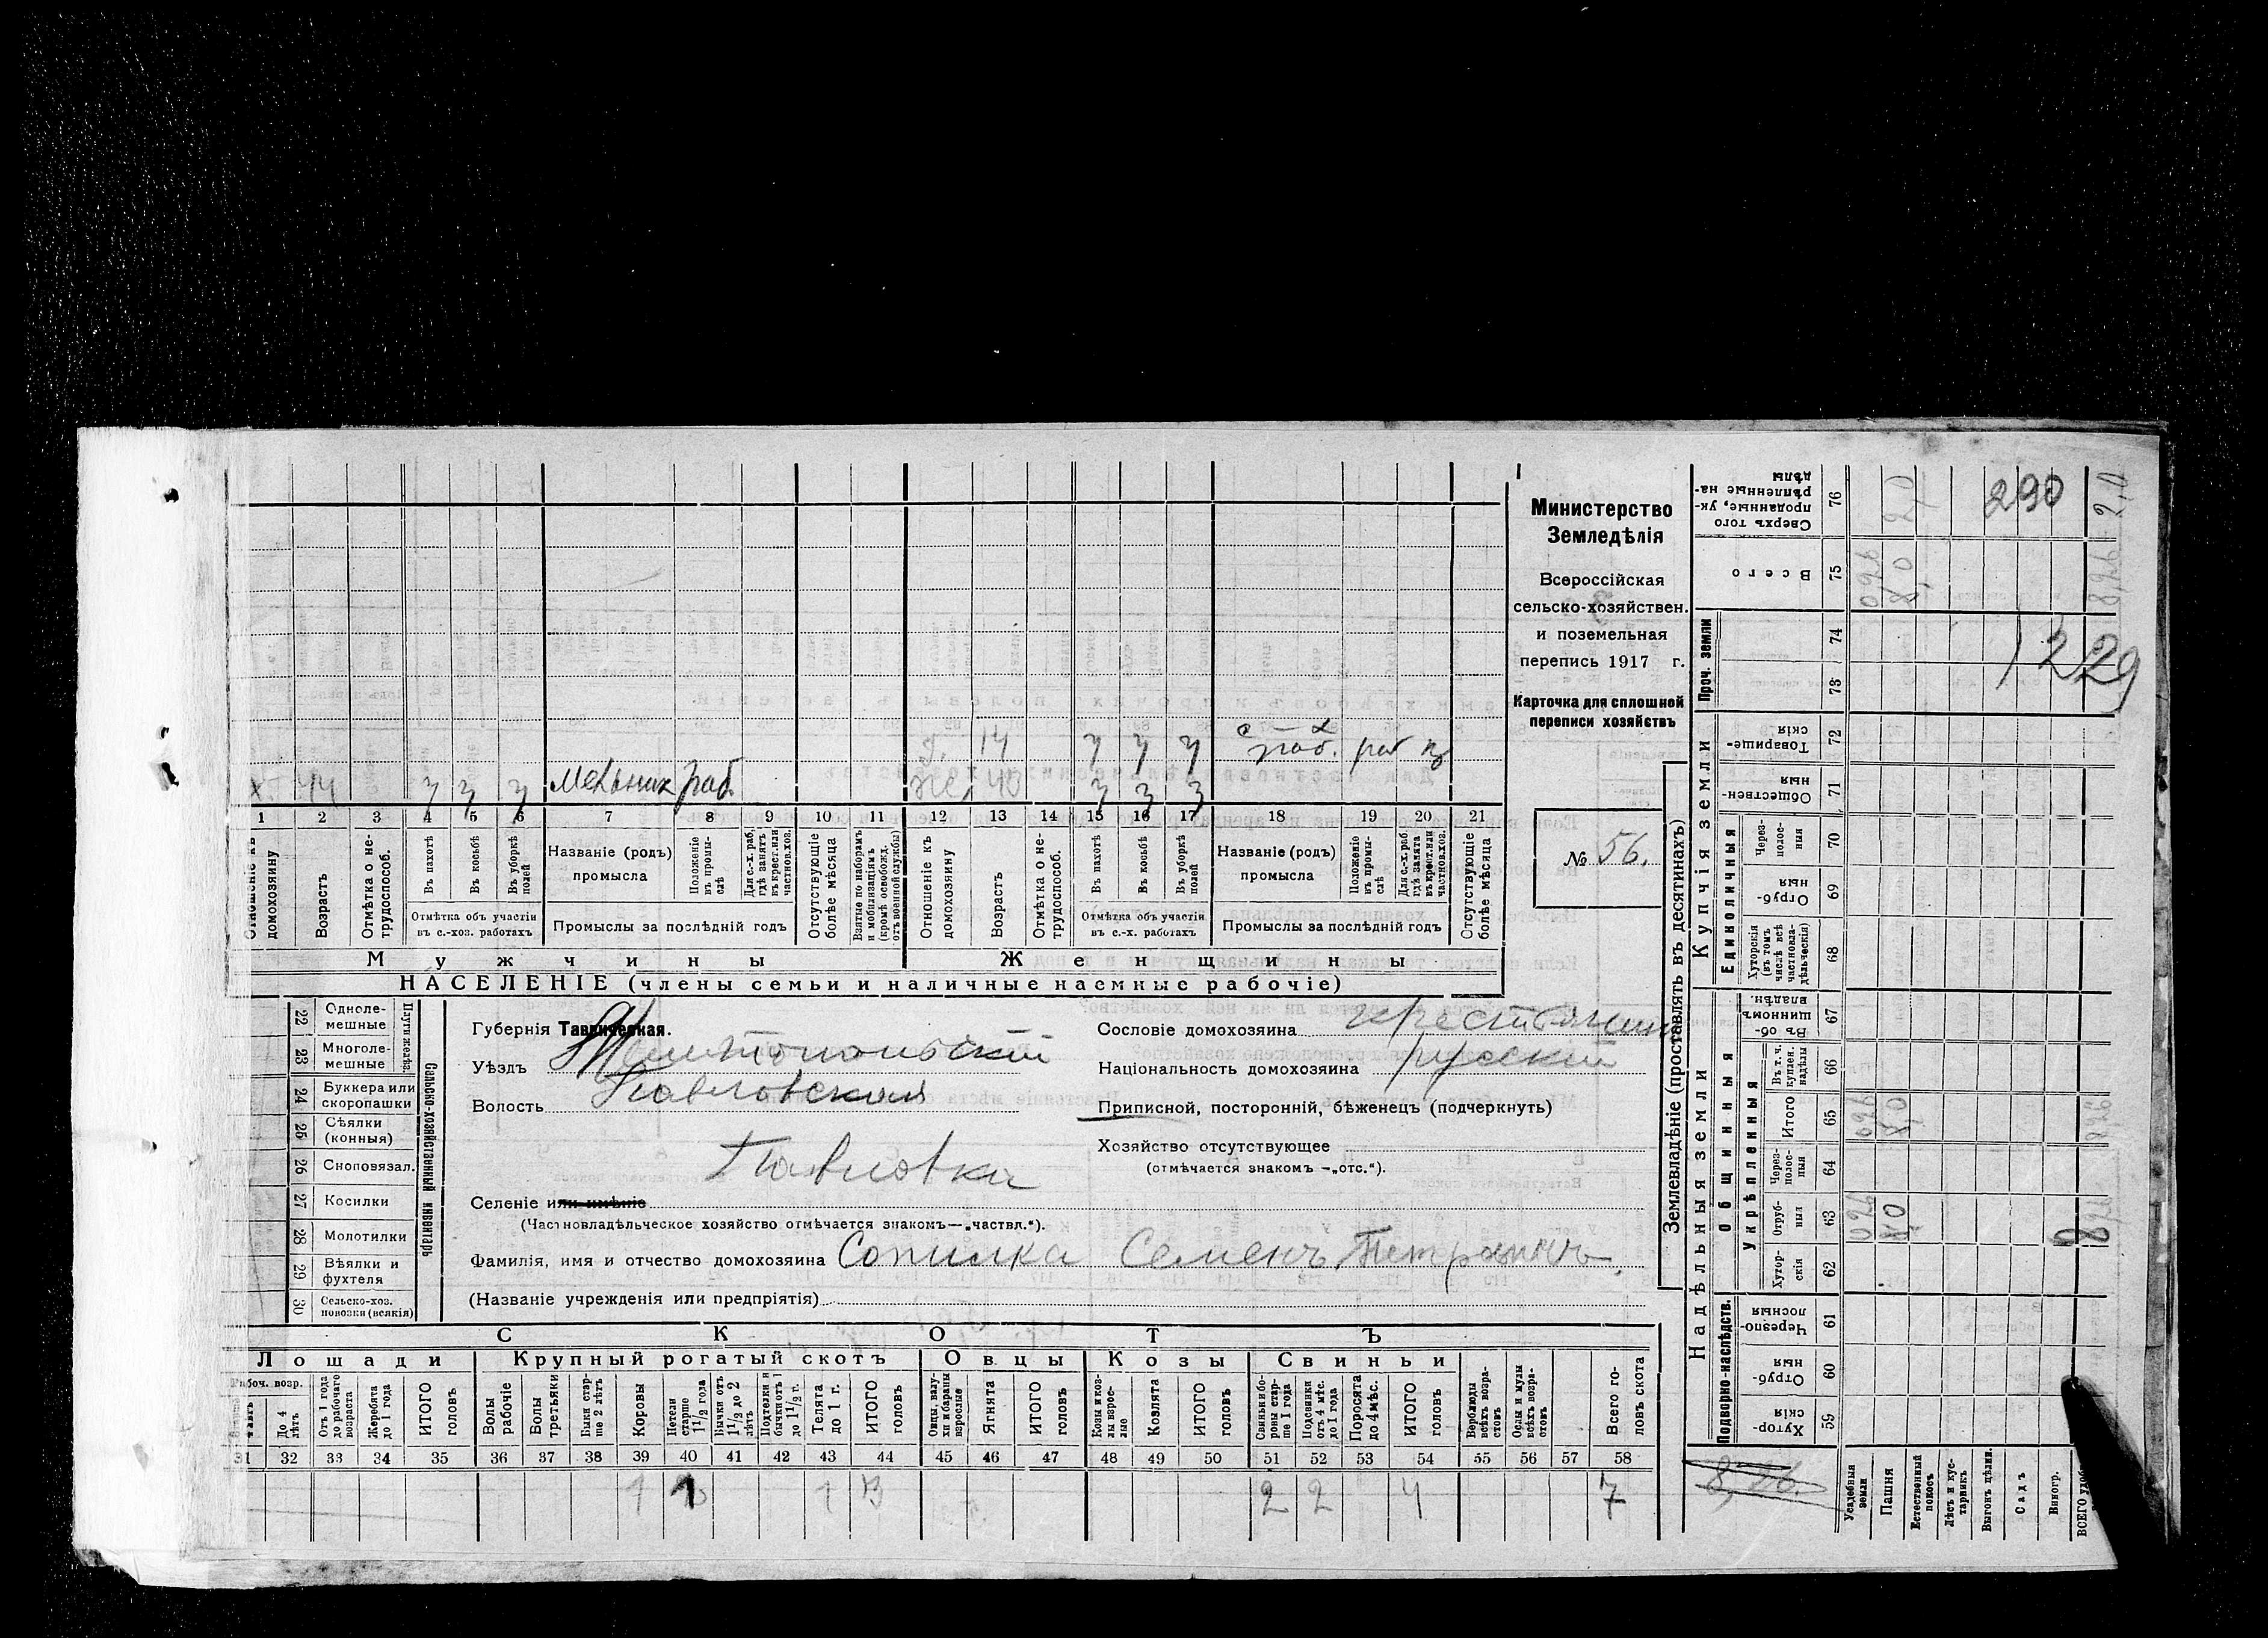 Министерство
Земледѣлія
Всероссійская
сельско-хозяйствен.
и поземельная
перепись 1917 г.
Карточка для сплошной
переписи хозяйствъ
№ 56.
14 раб. раб
44 мельник раб. же. 40
1 2 3 4 5 6 7 8 9 10 11 12 13 14 15 16 17 18 19 20 21
Отношеніе къ домохозяину
Возрастъ
Отмѣтка о не-трудоспособ.
Въ пахотѣ
Въ косьбѣ
Въ уборкѣ полей
Отмѣтка объ участіи
въ с.-хоз. работахъ
Названіе (родъ)
промысла
Положеніе въ промы-слѣ
Для с.-х. раб, гдѣ занятъ въ крест. или частнов. хоз.
Промыслы за послѣдній годъ
Отсутствующіе болѣе мѣсяца
Взятые по наборамъ и мобилизаціямъ (кромѣ освобожд. отъ военной службы)
Отношеніе къ домохозяину
Возрастъ
Отмѣтка о не-трудоспособ.
Въ пахотѣ
Въ косьбѣ
Въ уборкѣ полей
Отмѣтка объ участіи
въ с.-х. работахъ
Названіе (родъ)
промысла
Положеніе въ промы-слѣ
Для с.-х. раб. гдѣ занята въ крест. или частнов. хоз.
Промыслы за послѣдній годъ
Отсутствующіе болѣе мѣсяца
Мужчины Женщины
НАСЕЛЕНІЕ (члены семьи и наличные наемные рабочіе)
22 Одноле-мешные
23 Многоле-мешные
Плуги желѣз.
24 Буккера или скоропашки
25 Сѣялки (конныя)
26 Сноповязал.
27 Косилки
28 Молотилки
29 Вѣялки и фухтеля
30 Сельско-хоз. повозки (всякія)
Сельско-хозяйственный инвентарь
Губернія Таврическая.
Уѣздъ Мелитопольскій
Волость Павловская
Павловка
Селеніе или имѣніе
(Частновладѣльческое хозяйство отмѣчается знакомъ—„частвл.“).
Фамилія, имя и отчество домохозяина Сопилка Семенъ Петровичъ.
(Названіе учрежденія или предпріятія)
Сословіе домохозяина крестьянинъ
Національность домохозяина русскій
Приписной, посторонній, бѣженецъ (подчеркнуть)
Хозяйство отсутствующее
(отмѣчается знакомъ —„отс.“).
СКОТЪ
Лошади Крупный рогатый скотъ Овцы Козы Свиньи
Рабоч. возр.
До 4 лѣтъ
Отъ 1 года до рабочаго возраста
Жеребята до 1 года
ИТОГО головъ
Волы рабочіе
Волы третьяки
Быки стар-ше 2 лѣтъ
Коровы
Нетели старше 1 1/2 года
Бычки отъ 1 1/2 до 2 лѣтъ
Подтелки и бычки отъ 1 до 1 1/2 г.
Телята до 1 г.
ИТОГО головъ
Овцы, валу-хи и бараны взрослые
Ягнята
ИТОГО головъ
Козы и коз-лы взрос-лые
Козлята
ИТОГО головъ
Свиньи и бо-ровы стар-ше 1 года
Подсвинки отъ 4 мѣс. до 1 года
Поросята до 4 мѣс.
ИТОГО головъ
Верблюды всѣхъ возра-стовъ
Ослы и мулы всѣхъ возра-стовъ
Всего го-ловъ скота
31 32 33 34 35 36 37 38 39 40 41 42 43 44 45 46 47 48 49 50 51 52 53 54 55 56 57 58
1 1 1 3 2 2 4 7
Землевладѣніе (проставлять въ десятинахъ)
Надѣльныя земли Купчія земли Проч. земли
Подворно-наслѣдств.
Общинныя
Укрѣпленныя
Единоличныя
76 Сверхъ того проданные, ук-рѣпленные на-дѣлы 2,0 290 2,0
75 Всего 026 8,0 8,26
74
73 1229
72 Товарище-скія
71 Обществен-ныя
70 Через-полос-ныя
69 Отруб-ныя
68 Хуторскія (въ томъ числѣ всѣ частновла-дѣльческія)
67 Въ об-щинномъ владѣн.
66 Въ т. ч. куплен. надѣлы
65 Итого 026 8,0 8,26
64 Через-полос-ныя
63 Отруб-ныя 026 8,0 8,26
62 Хутор-скія
61 Черезпо-лосныя
60 Отруб-ныя
59 Хутор-скія
8,26.
Усадебныя земли
Пашня
Естественный покосъ
Лѣсъ и кус-тарникъ
Выгонъ цѣлин.
Садъ
Виногр.
ВСЕГО удобн.